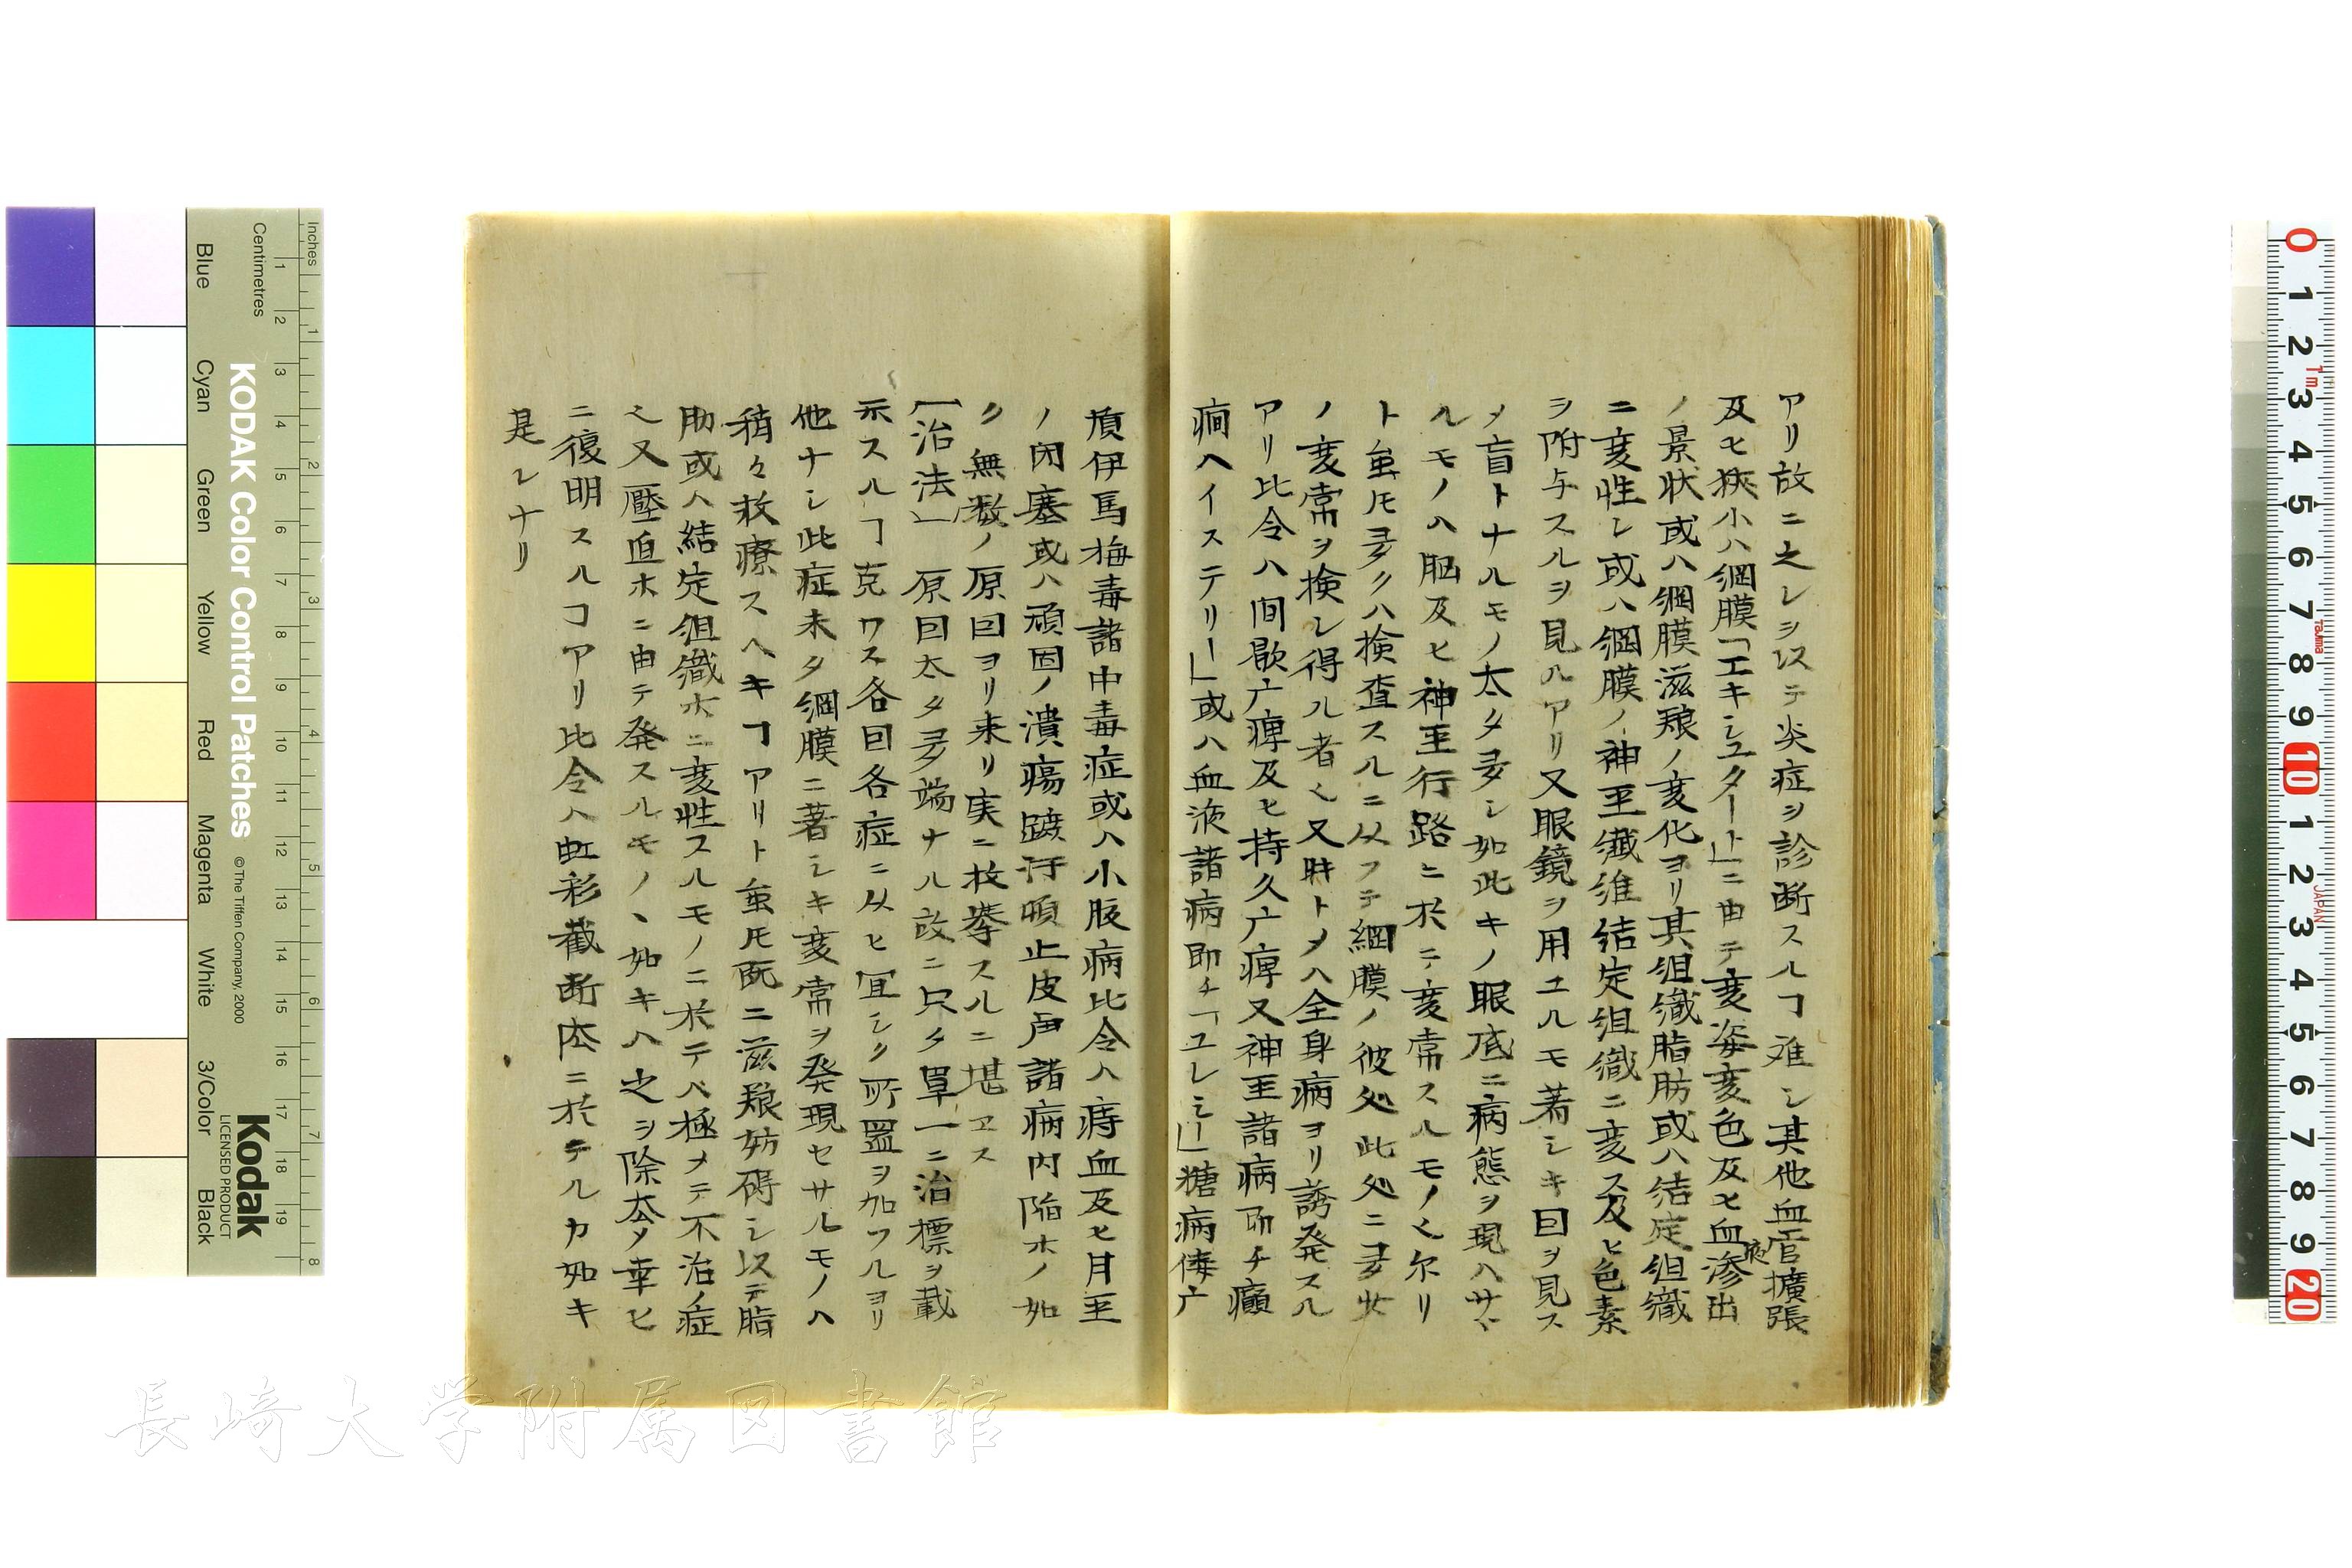 アリ故ニ之レヲ以テ炎症ヲ診断スルヿ难シ其他血管擴張
及ヒ狹小ハ網膜「エキシユタート」ニ由テ変姿変色及ヒ血液渗出
ノ景状或ハ網膜滋飬ノ変化ヨリ其组織脂肪或ハ结定组織
ニ変性シ或ハ網膜ノ神圣纎维结定组織ニ変ス及ヒ色素
ヲ附与スルヲ見ルアリ又眼鏡ヲ用ユルモ著シキ囙ヲ見ス
メ盲トナルモノ太タ多シ如此キノ眼底ニ病態ヲ現ハサヽ
ルモノハ脳及ヒ神圣行路ニ於テ変常スルモノ也尔リ
ト虽𪜈多クハ検査スルニ从フテ網膜ノ彼処此処ニ多少
ノ変常ヲ検シ得ル者也又時トメハ全身病ヨリ誘発スル
アリ比令ハ间歇疒痺及ヒ持久疒痺又神圣諸病即チ癲
癇ヘイステリー」或ハ血液諸病即チ「ユレミー」糖病偻疒
質伊馬梅毒諸中毒症或ハ小腹病比令ハ痔血及ヒ月圣
ノ闭塞或ハ頑固ノ潰瘍蹠汗頓止皮膚諸病内陥ホノ如
ク無数ノ原囙ヨリ来リ実ニ枚挙スルニ堪ヱス
「治法」原囙太タ多端ナル故ニ只タ單一ニ治標ヲ載
示スルヿ克ワス各囙各症ニ从ヒ宜シク所置ヲ加フルヨリ
他ナシ此症未タ網膜ニ著シキ変常ヲ発現セサルモノハ
稍々救療スヘキヿアリト虽𪜈既ニ滋飬妨碍シ以テ脂
肪或ハ結定组織ホニ変性スルモノニ於テハ極メテ不治ノ症
也又壓迫ホニ由テ発スルモノヽ如キハ之ヲ除去メ幸ヒ
ニ復明スルコアリ比令ハ虹彩截断术ニ於テルカ如キ
是レナリ
KODAK Color Control Patches
© The Tiffen Company, 2000
Kodak
LICENSED PRODUCT
Inches
Centimetres
Blue
Cyan
Green
Yellow
Red
Magenta
White
3/Color
Black
長崎大学附属図書館